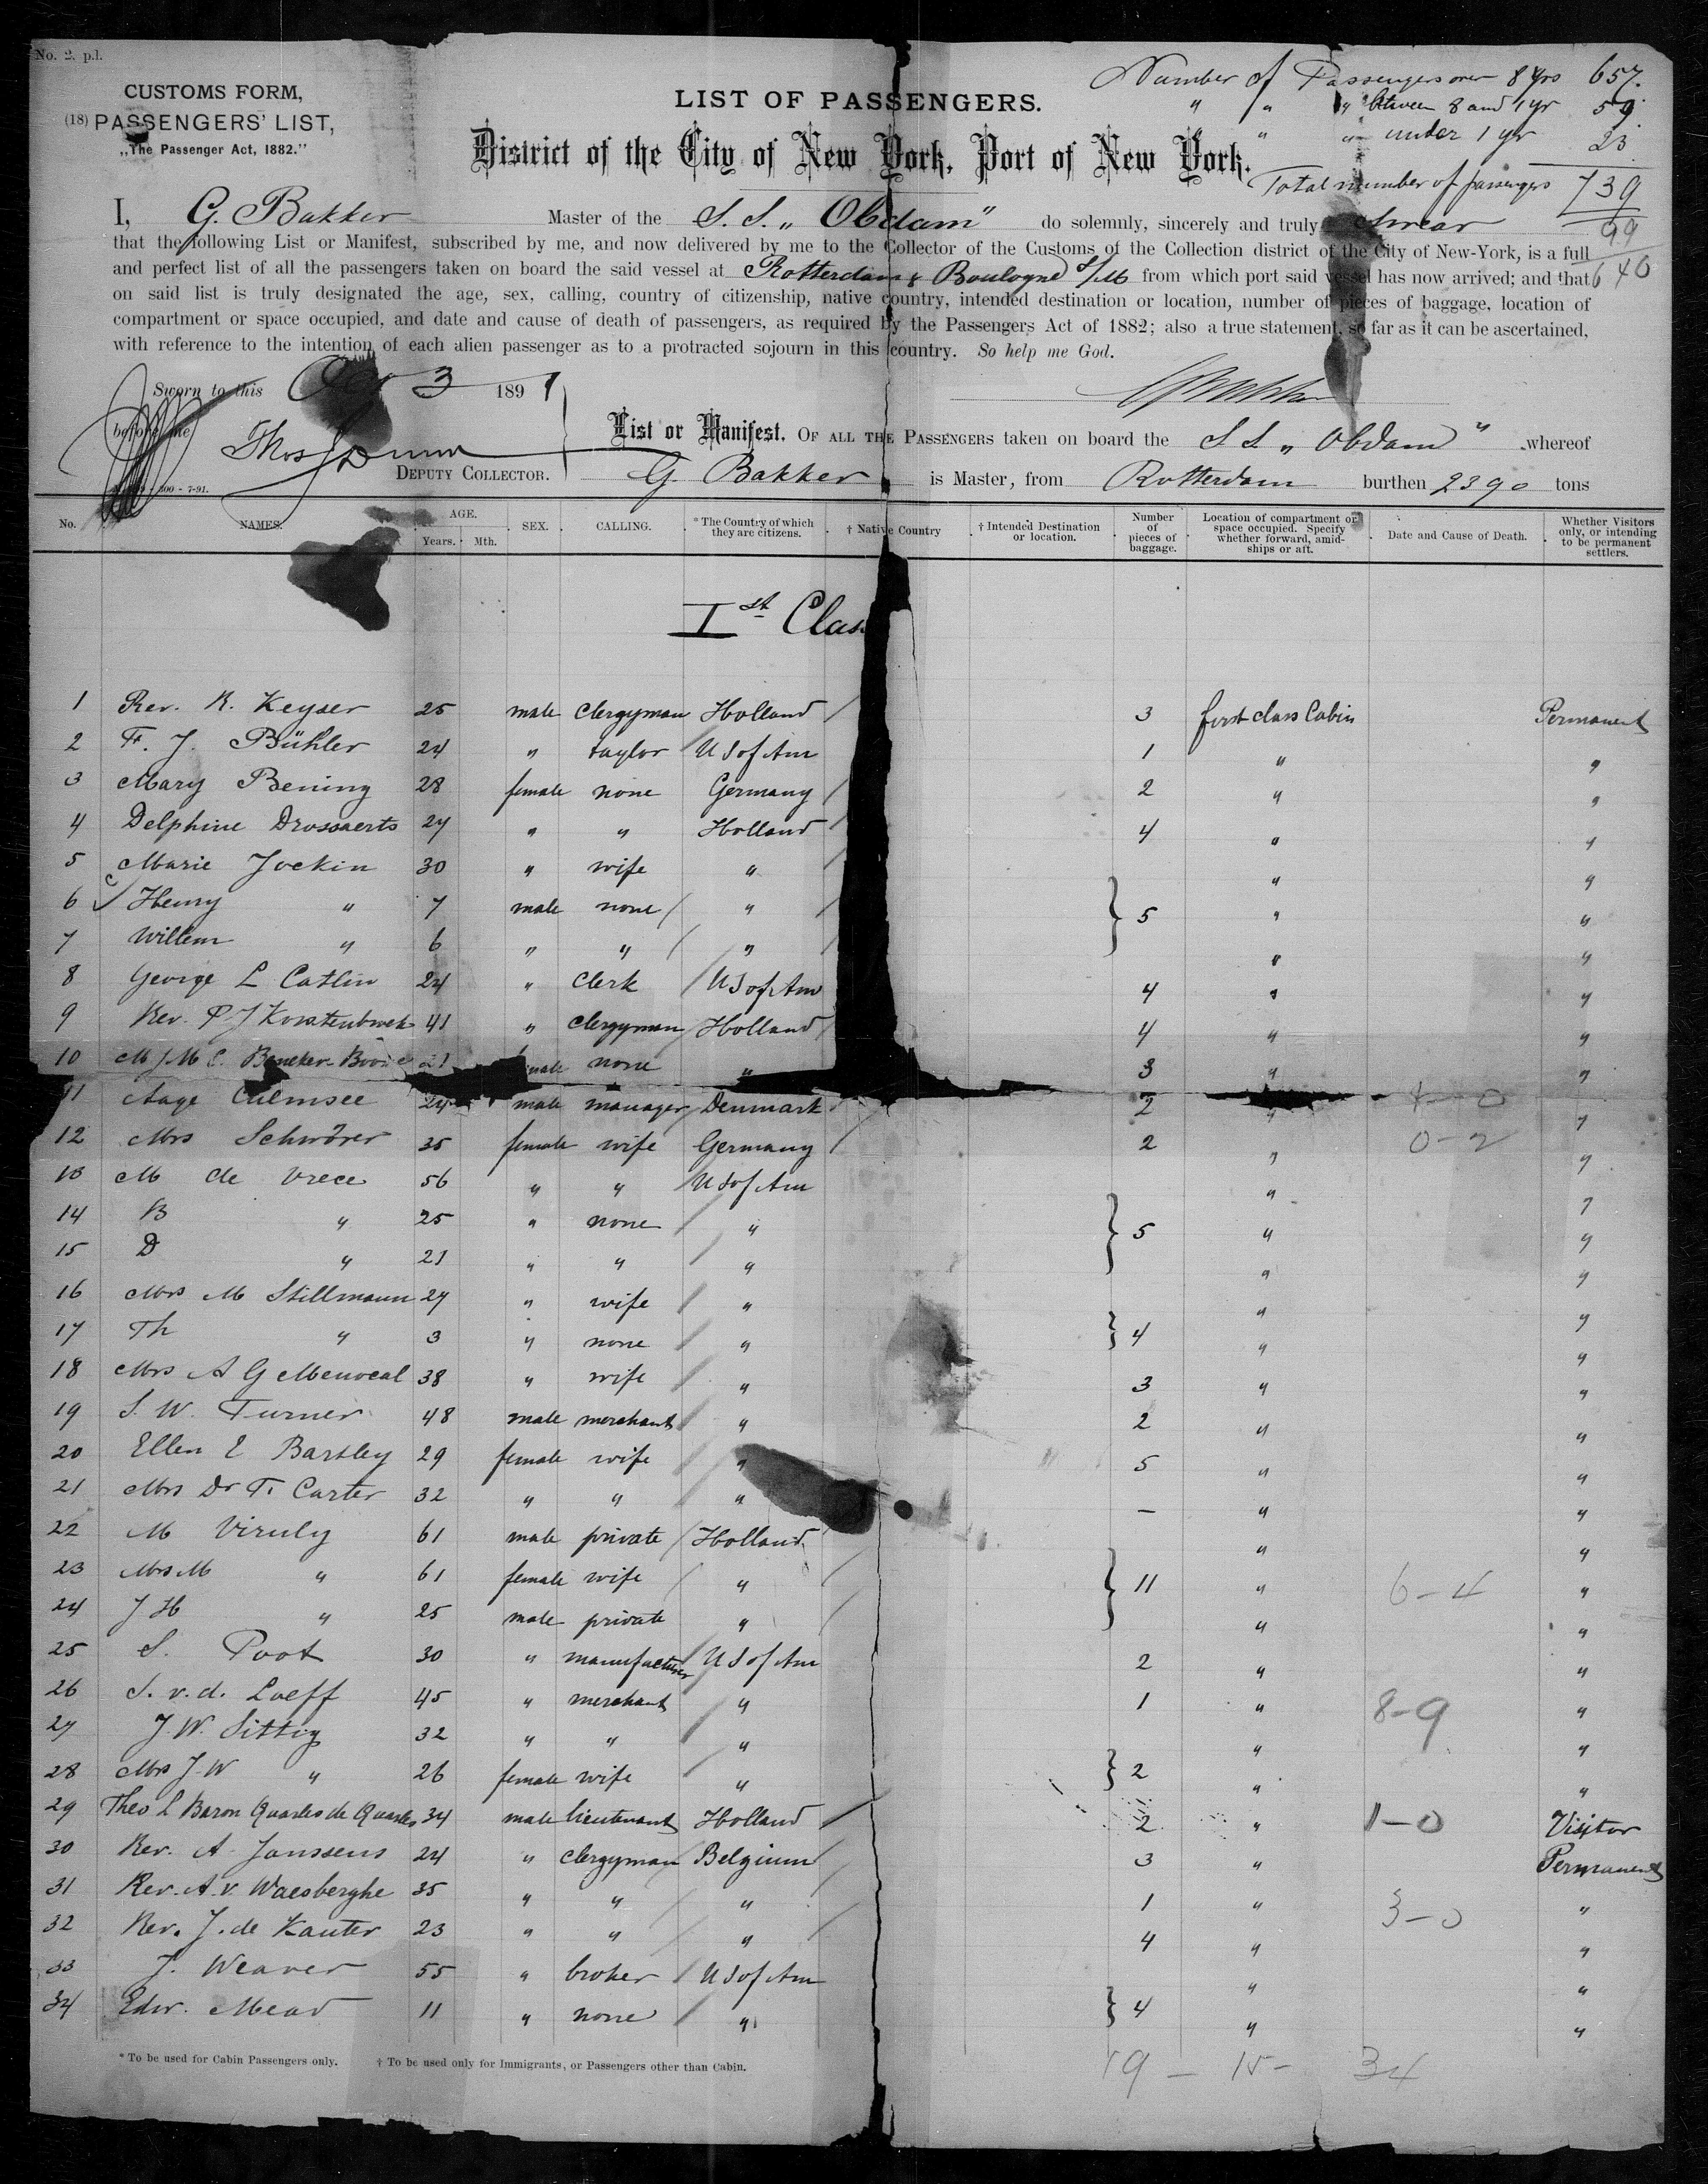 No. 2. p.l.
CUSTOMS FORM,
(18) PASSENGERS' LIST,
„The Passenger Act, 1882."
LIST OF PASSENGERS.
District of the City of New York, Port of New York.
Number of Passengers over 8 yrs 657.
" " " between 8 and 1 yr 59.
" " under 1 yr 23.
Total number of passengers 739
99
640
I, G. Bakker Master of the S. S. „ Obdam" do solemnly, sincerely and truly swear
that the following List or Manifest, subscribed by me, and now delivered by me to the Collector of the Customs of the Collection district of the City of New-York, is a full
and perfect list of all the passengers taken on board the said vessel at Rotterdam & Boulogne s/M from which port said vessel has now arrived; and that
on said list is truly designated the age, sex, calling, country of citizenship, native country, intended destination or location, number of pieces of baggage, location of
compartment or space occupied, and date and cause of death of passengers, as required by the Passengers Act of 1882; also a true statement, so far as it can be ascertained,
with reference to the intention of each alien passenger as to a protracted sojourn in this country. So help me God.
Sworn to this Oct 3 1891
before me
Thos Dunn
DEPUTY COLLECTOR.
300 - 7-91.
List or Manifest. OF ALL THE PASSENGERS taken on board the S S „ Obdam " whereof
G. Bakker is Master, from Rotterdam burthen 2390 tons
No. NAMES. AGE. Years. Mth. SEX. CALLING. * The Country of which they are citizens. † Native Country † Intended Destination or location. Number of pieces of baggage. Location of compartment or space occupied. Specify whether forward, amidships or aft. Date and Cause of Death. Whether Visitors only, or intending to be permanent settlers.
Ist Clas
1 Rev. K. Keyser 25 male Clergyman Holland 3 first class Cabin Permanent
2 F. J. Bühler 24 " taylor U S of Am 1 " "
3 Mary Bening 28 female none Germany 2 " "
4 Delphine Drossaerts 27 " " Holland 4 " "
5 Marie Jockin 30 " wife " " "
6 Henry " 7 male none " 5 " "
7 Willem " 6 " " " " "
8 George L Catlin 24 " Clerk U S of Am 4 " "
9 Rev. P. J 41 " Clergyman Holland 4 " "
10 M J M C. Beneker none " 3 " "
11 Aage Culmsee 24 male manager Denmark 2 " 1-0 "
12 Mrs Schwörer 35 female wife Germany 2 " 0-2 "
13 M de Vrece 56 " " U S of Am " "
14 B " 25 " none " 5 " "
15 D " 21 " " " " "
16 Mrs M Stillmann 27 " wife " " "
17 Th " 3 " none " 4 " "
18 Mrs A G Menocal 38 " wife " 3 " "
19 S. W. Turner 48 male merchant " 2 " "
20 Ellen E Bartley 29 female wife " 5 " "
21 Mrs Dr F. Carter 32 " " " — " "
22 M Viruly 61 male private Holland " "
23 Mrs M " 61 female wife " 11 " 6-4 "
24 J H " 25 male private " " "
25 S. Poot 30 " manufacturer U S of Am 2 " "
26 S. v. d. Loeff 45 " merchant " 1 " 8-9 "
27 J. W. Sittig 32 " " " " "
28 Mrs J. W " 26 female wife " 2 " "
29 Theo L Baron Quarles de Quarles 34 male lieutenant Holland 2 " 1-0 Visitor
30 Rev. A. Janssens 24 " clergyman Belgium 3 " Permanent
31 Rev. A. v. Waesberghe 35 " " " 1 " 3-0 "
32 Rev. J. de Kauter 23 " " " 4 " "
33 J. Weaver 55 " broker U S of Am " "
34 Edw. Mead 11 " none " 4 " "
* To be used for Cabin Passengers only. † To be used only for Immigrants, or Passengers other than Cabin.
19 - 15 - 34